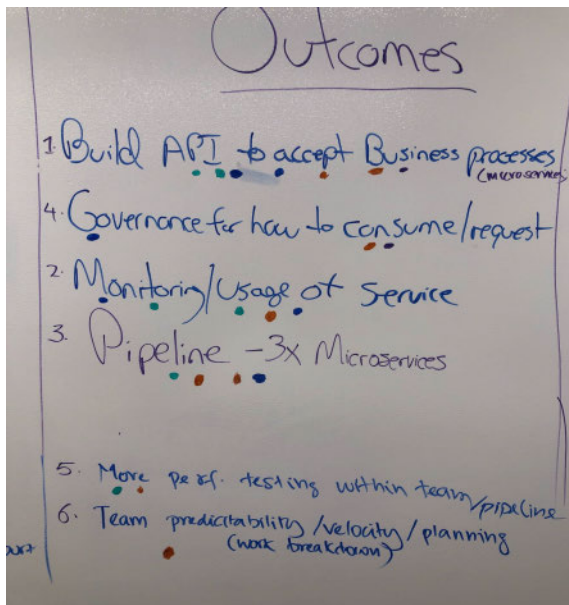 Outcomes
1. Build API to accept Business processes
(microservices)
4. Governance for how to consume/request
2. Monitoring/Usage of Service
3. Pipeline - 3x Microservices
5. More perf. testing within team/pipeline
6. Team predicitability/velocity/planning
(work breakdown)